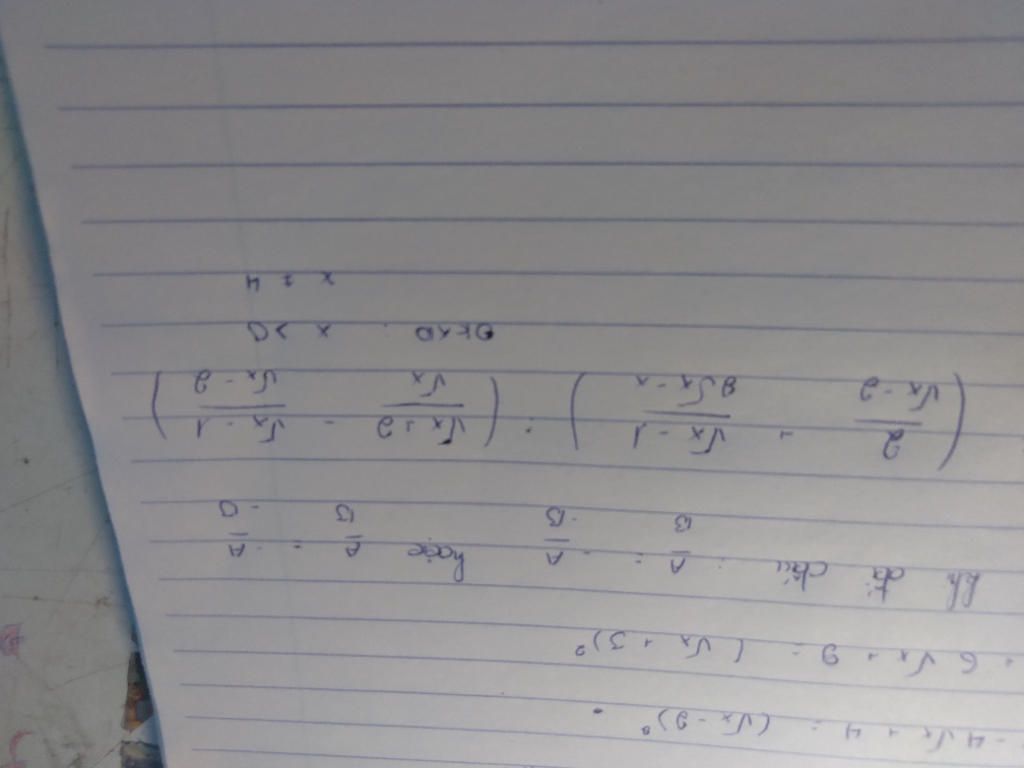 - 4√x + 4 = (√x - 2)²
+ 6√x + 9 = (√x + 3)²
đổi dấu : A/B = - A/-B hoặc A/B = -A/-B
(2/(√x - 2) + (√x - 1)/(2√x - x)) : ((√x + 2)/√x - (√x - 1)/(√x - 2))
ĐKXĐ : x > 0
x ≠ 4